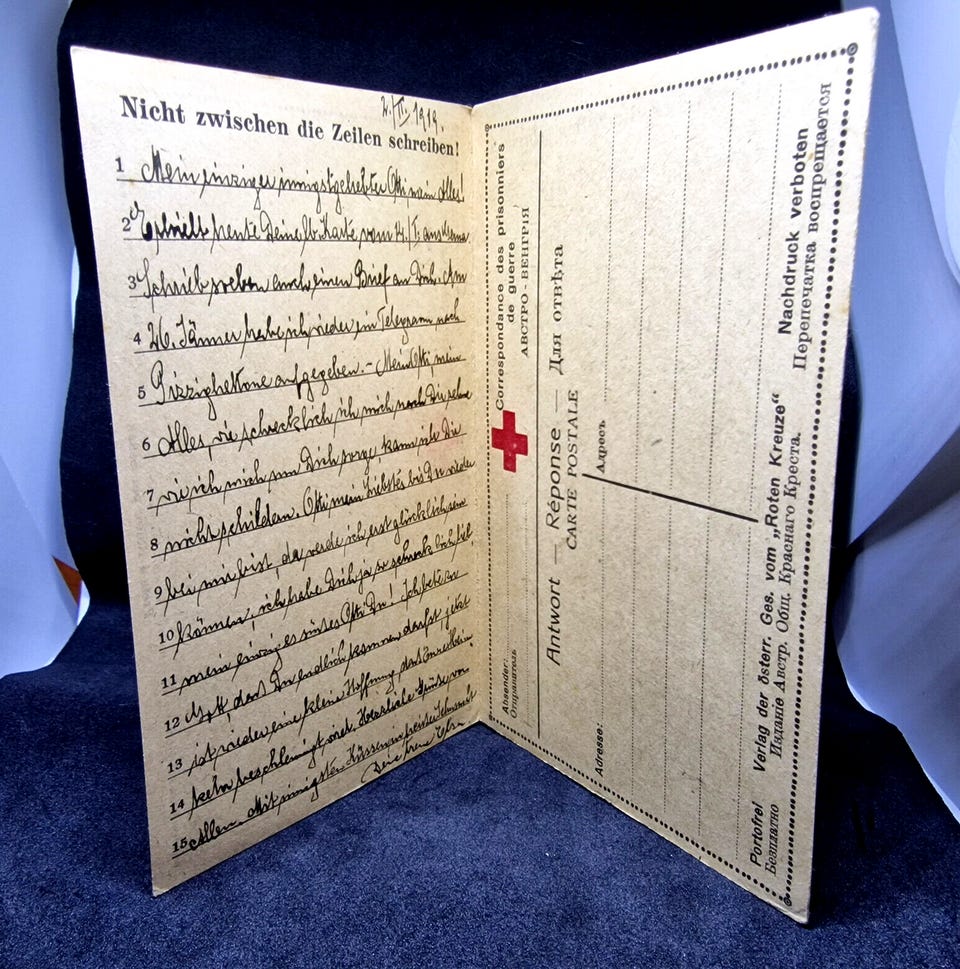 2./II. 1919.
Nicht zwischen die Zeilen schreiben!
1 Mein einziger innigstgeliebter Otti mein Alles!
2 Erhielt heute Deine lb. Karte vom 14./I. aus
3 Schrieb soeben auch einen Brief an Dich. Am
4 26. Jänner habe ich wieder ein Telegramm nach
5 Pizzighettone aufgegeben. – Mein Otti, mein
6 Alles, wie schrecklich ich mich nach Dir sehne
7 wie ich mich um Dich sorge kann ich Dir
8 nicht schildern. Otti mein Liebstes bis Du wieder
9 bei mir bist, da werde ich erst glücklich sein
10 können, ich habe Dich ja so schrecklich lieb
11 mein einziger süsser Otti Du! Ich bete zu
12 Gott, dass Du endlich kommen darfst jetzt
13 ist wieder eine kleine Hoffnung, dass Eure Heim
14 kehr beschleunigt wird. Herzliche Grüsse von
15 Allen. Mit innigsten Küssen in heisser Sehnsucht
Deine treue
Correspondance des prisonniers
de guerre
АВСТРО-ВЕНГРІЯ
Absender:
Отправитель
Antwort — Réponse — Для отвѣта
CARTE POSTALE
Адресъ
Adresse:
Portofrei Verlag der österr. Ges. vom „Roten Kreuze“ Nachdruck verboten
Безплатно Изданіе Австр. Общ. Краснаго Креста. Перепечатка воспрещается